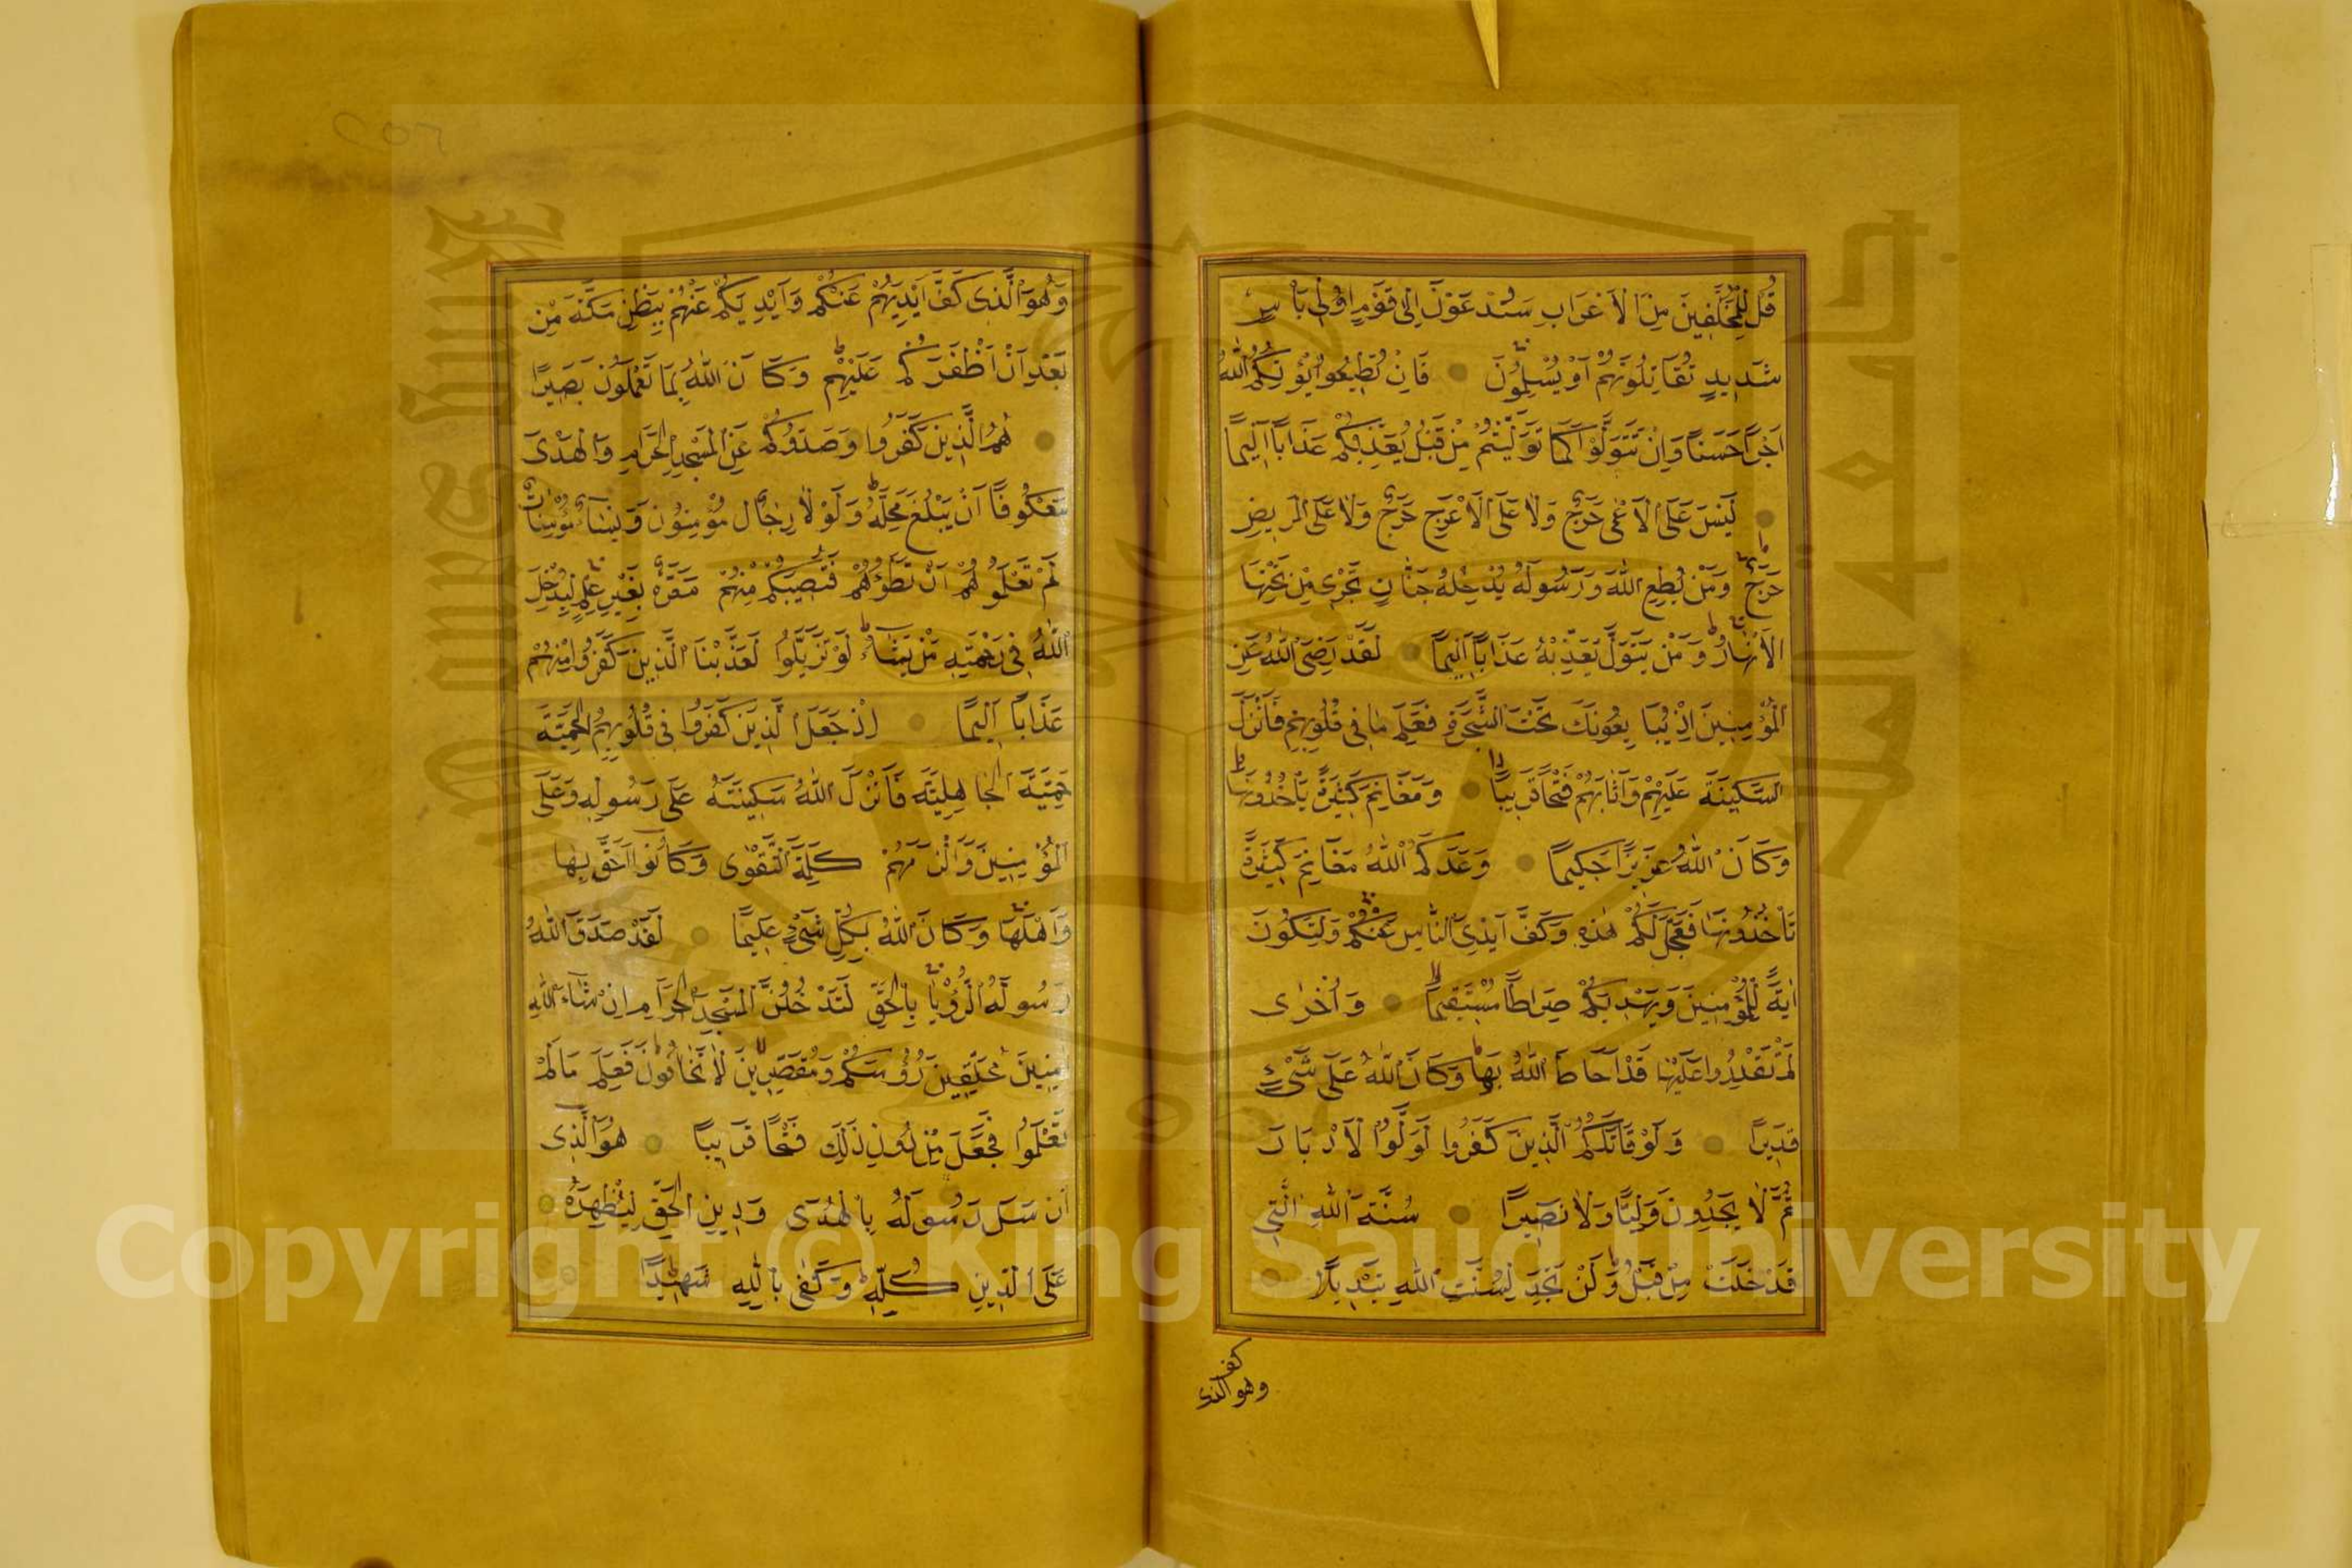 قُلْ لِلْمُخَلَّفِينَ مِنَ الْاَعْرَابِ سَتُدْعَوْنَ اِلٰى قَوْمٍ اُولِى بَاْسٍ
شَدِيدٍ تُقَاتِلُونَهُمْ اَوْ يُسْلِمُونَ فَاِنْ تُطِيعُوا يُؤْتِكُمُ اللّٰهُ
اَجْرًا حَسَنًا وَاِنْ تَتَوَلَّوْا كَمَا تَوَلَّيْتُمْ مِنْ قَبْلُ يُعَذِّبْكُمْ عَذَابًا اَلِيمًا
لَيْسَ عَلَى الْاَعْمٰى حَرَجٌ وَلَا عَلَى الْاَعْرَجِ حَرَجٌ وَلَا عَلَى الْمَرِيضِ
حَرَجٌ وَمَنْ يُطِعِ اللّٰهَ وَرَسُولَهُ يُدْخِلْهُ جَنَّاتٍ تَجْرِى مِنْ تَحْتِهَا
الْاَنْهَارُ وَمَنْ يَتَوَلَّ يُعَذِّبْهُ عَذَابًا اَلِيمًا لَقَدْ رَضِىَ اللّٰهُ عَنِ
الْمُؤْمِنِينَ اِذْ يُبَايِعُونَكَ تَحْتَ الشَّجَرَةِ فَعَلِمَ مَا فِى قُلُوبِهِمْ فَاَنْزَلَ
السَّكِينَةَ عَلَيْهِمْ وَاَثَابَهُمْ فَتْحًا قَرِيبًا وَمَغَانِمَ كَثِيرَةً يَاْخُذُونَهَا
وَكَانَ اللّٰهُ عَزِيزًا حَكِيمًا وَعَدَكُمُ اللّٰهُ مَغَانِمَ كَثِيرَةً
تَاْخُذُونَهَا فَعَجَّلَ لَكُمْ هٰذِهِ وَكَفَّ اَيْدِىَ النَّاسِ عَنْكُمْ وَلِتَكُونَ
اٰيَةً لِلْمُؤْمِنِينَ وَيَهْدِيَكُمْ صِرَاطًا مُسْتَقِيمًا وَاُخْرٰى
لَمْ تَقْدِرُوا عَلَيْهَا قَدْ اَحَاطَ اللّٰهُ بِهَا وَكَانَ اللّٰهُ عَلٰى كُلِّ شَىْءٍ
قَدِيرًا وَلَوْ قَاتَلَكُمُ الَّذِينَ كَفَرُوا لَوَلَّوُا الْاَدْبَارَ
ثُمَّ لَا يَجِدُونَ وَلِيًّا وَلَا نَصِيرًا سُنَّةَ اللّٰهِ الَّتِى
قَدْ خَلَتْ مِنْ قَبْلُ وَلَنْ تَجِدَ لِسُنَّتِ اللّٰهِ تَبْدِيلًا
وهو الذى كف
وَهُوَ الَّذِى كَفَّ اَيْدِيَهُمْ عَنْكُمْ وَاَيْدِيَكُمْ عَنْهُمْ بِبَطْنِ مَكَّةَ مِنْ
بَعْدِ اَنْ اَظْفَرَكُمْ عَلَيْهِمْ وَكَانَ اللّٰهُ بِمَا تَعْمَلُونَ بَصِيرًا
هُمُ الَّذِينَ كَفَرُوا وَصَدُّوكُمْ عَنِ الْمَسْجِدِ الْحَرَامِ وَالْهَدْىَ
مَعْكُوفًا اَنْ يَبْلُغَ مَحِلَّهُ وَلَوْلَا رِجَالٌ مُؤْمِنُونَ وَنِسَاءٌ مُؤْمِنَاتٌ
لَمْ تَعْلَمُوهُمْ اَنْ تَطَؤُهُمْ فَتُصِيبَكُمْ مِنْهُمْ مَعَرَّةٌ بِغَيْرِ عِلْمٍ لِيُدْخِلَ
اللّٰهُ فِى رَحْمَتِهِ مَنْ يَشَاءُ لَوْ تَزَيَّلُوا لَعَذَّبْنَا الَّذِينَ كَفَرُوا مِنْهُمْ
عَذَابًا اَلِيمًا اِذْ جَعَلَ الَّذِينَ كَفَرُوا فِى قُلُوبِهِمُ الْحَمِيَّةَ
حَمِيَّةَ الْجَاهِلِيَّةِ فَاَنْزَلَ اللّٰهُ سَكِينَتَهُ عَلٰى رَسُولِهِ وَعَلَى
الْمُؤْمِنِينَ وَاَلْزَمَهُمْ كَلِمَةَ التَّقْوٰى وَكَانُوا اَحَقَّ بِهَا
وَاَهْلَهَا وَكَانَ اللّٰهُ بِكُلِّ شَىْءٍ عَلِيمًا لَقَدْ صَدَقَ اللّٰهُ
رَسُولَهُ الرُّؤْيَا بِالْحَقِّ لَتَدْخُلُنَّ الْمَسْجِدَ الْحَرَامَ اِنْ شَاءَ اللّٰهُ
اٰمِنِينَ مُحَلِّقِينَ رُؤُسَكُمْ وَمُقَصِّرِينَ لَا تَخَافُونَ فَعَلِمَ مَا لَمْ
تَعْلَمُوا فَجَعَلَ مِنْ دُونِ ذٰلِكَ فَتْحًا قَرِيبًا هُوَ الَّذِى
اَرْسَلَ رَسُولَهُ بِالْهُدٰى وَدِينِ الْحَقِّ لِيُظْهِرَهُ
عَلَى الدِّينِ كُلِّهِ وَكَفٰى بِاللّٰهِ شَهِيدًا
Copyright © King Saud University